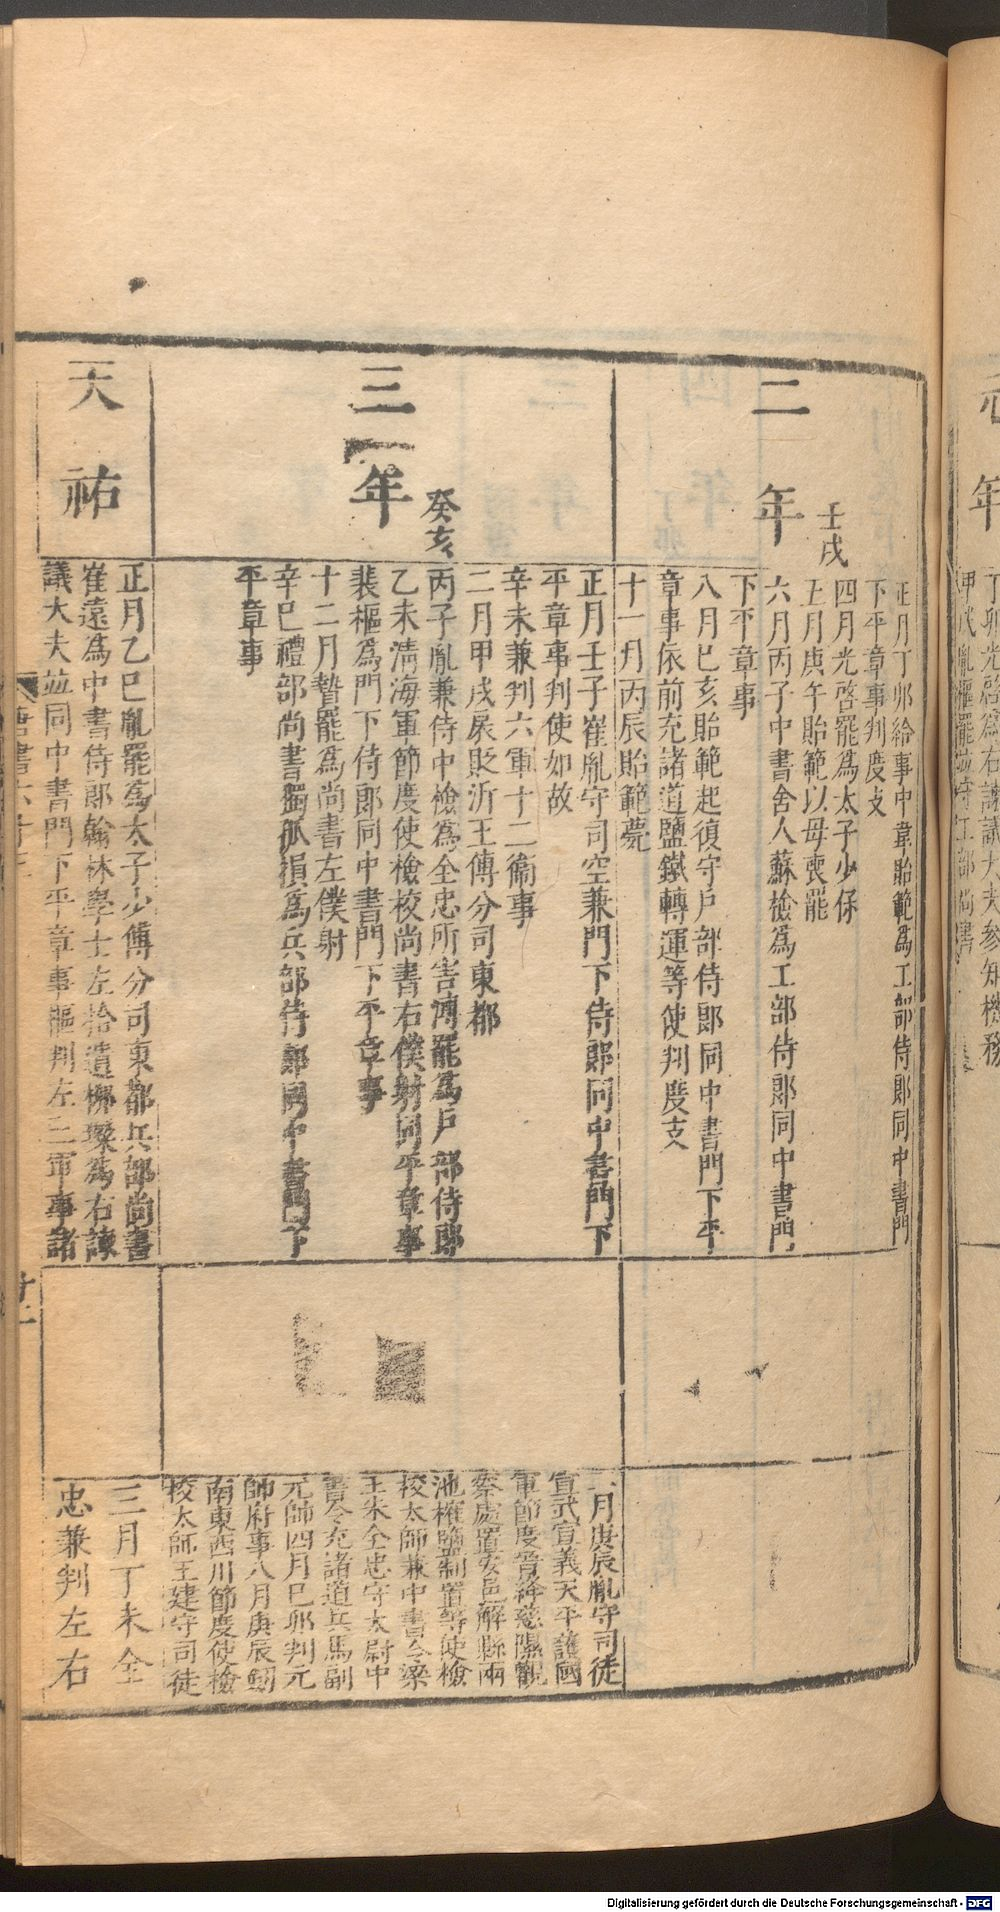 二年
壬戌
正月丁卯給事中韋貽範爲工部侍郎同中書門
下平章事判度支
四月光啓罷爲太子少保
五月庚午貽範以母喪罷
六月丙子中書舍人蘇檢爲工部侍郎同中書門
下平章事
八月己亥貽範起復守戶部侍郎同中書門下平
章事依前充諸道鹽鐵轉運等使判度支
十一月丙辰貽範薨
三年
癸亥
正月壬子崔胤守司空兼門下侍郎同中書門下
平章事判使如故
辛未兼判六軍十二衞事
二月甲戌扆貶沂王傅分司東都
丙子胤兼侍中檢爲全忠所害溥罷爲戶部侍郎
乙未淸海軍節度使檢校尚書右僕射同平章事
裴樞爲門下侍郎同中書門下平章事
十二月贄罷爲尚書左僕射
辛巳禮部尚書獨孤損爲兵部侍郎同中書門下
平章事
二月庚辰胤守司徒
宣武宣義天平護國
軍節度晉絳慈隰觀
察處置安邑解縣兩
池榷鹽制置等使檢
校太師兼中書令梁
王朱全忠守太尉中
書令充諸道兵馬副
元帥四月己卯判元
帥府事八月庚辰劒
南東西川節度使檢
校太師王建守司徒
天祐
正月乙巳胤罷爲太子少傅分司東都兵部尚書
崔遠爲中書侍郎翰林學士左拾遺柳璨爲右諫
議大夫並同中書門下平章事樞判左三軍事諸
三月丁未全
忠兼判左右
唐書六十三
廿二
年
丁卯光啓爲右諫議大夫參知機務
甲戌胤樞罷並守工部尚書
Digitalisierung gefördert durch die Deutsche Forschungsgemeinschaft - DFG